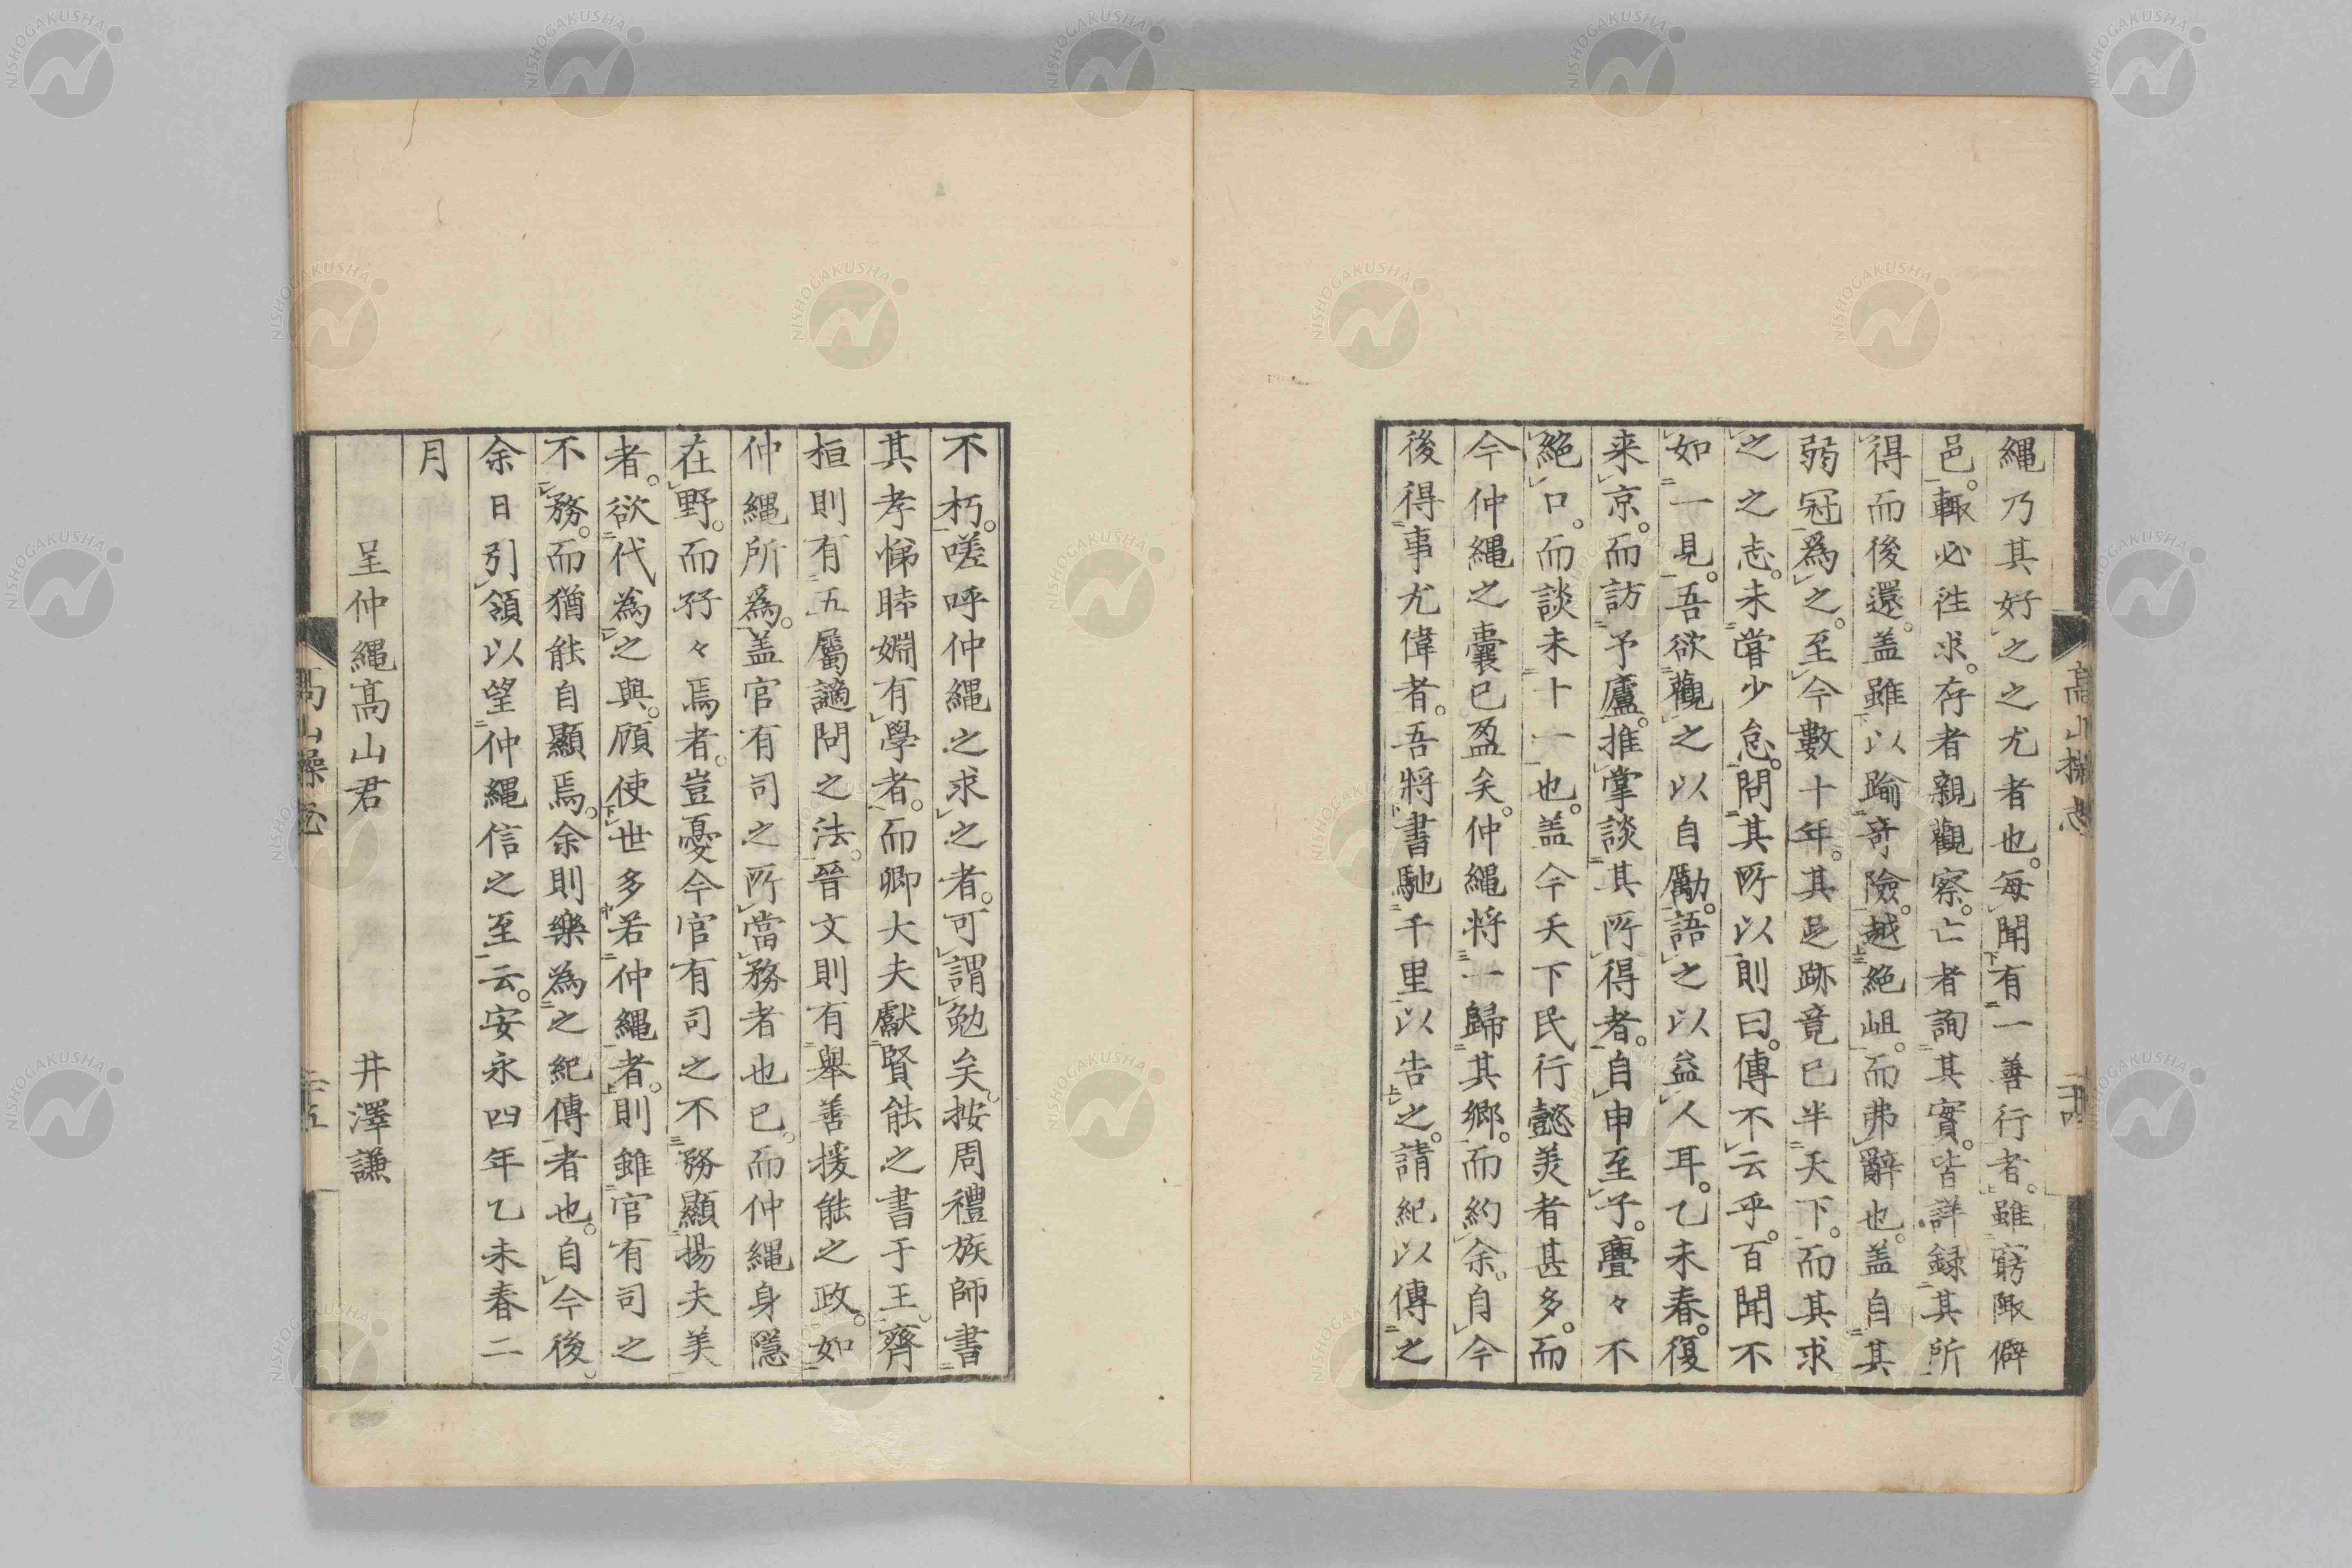 縄乃其好之之尤者也。毎聞有一善行者。雖窮陬僻
邑。輙必往求。存者親觀察。亡者詢其實。皆詳録其所
得而後還。盖雖以踰奇險。越絶岨。而弗辭也。盖自其
弱冠爲之。至今數十年。其足跡竟已半天下。而其求
之之志。未嘗少怠。問其所以則曰。傳不云乎。百聞不
如一見。吾欲觀之以自勵。語之以益人耳。乙未春。復
来京。而訪予廬。推掌談其所得者。自申至子。亹々不
絶口。而談未十一也。盖今天下民行懿美者甚多。而
今仲縄之嚢已盈矣。仲縄将一歸其郷。而約余。自今
後得事尤偉者。吾将書馳千里以告之。請紀以傳之
髙山操志
不朽。嗟呼仲縄之求之者。可謂勉矣。按周禮族師書
其孝悌睦婣有學者。而卿大夫獻賢能之書于王。齊
桓則有五屬讁問之法。晉文則有舉善援能之政。如
仲縄所爲。盖官有司之所當務者也已。而仲縄身隱
在野。而孜々焉者。豈憂今官有司之不務顯揚夫美
者。欲代為之與。顧使世多若仲縄者。則雖官有司之
不務。而猶能自顯焉。余則樂為之紀傳者也。自今後。
余日引領以望仲縄信之至云。安永四年乙未春二
月
呈仲縄髙山君 井澤謙
髙山操志 二十五
NISHOGAKUSHA